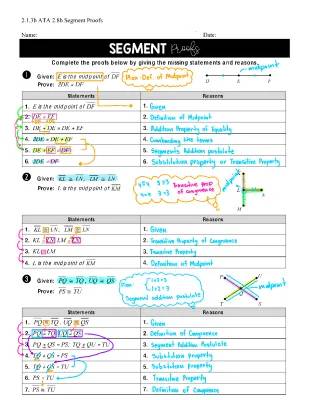 2.1.3b ATA 2.8b Segment Proofs
Name: Date:
SEGMENT Proofs
Complete the proofs by giving the missing statements and reasons.
1 Given: E is the midpoint of DF
Prove: 2DE = DF
Plan: Def. of Midpoint
midpoint
D E F
Statements Reasons
1. E is the midpoint of DF 1. Given
2. DE = EF 2. Definition of Midpoint
3. DE + DE = DE + EF 3. Addition Property of Equality
4. 2DE = DE + EF 4. Combining like terms
5. DE + EF = DF 5. Segments Addition postulate
6. 2DE = DF 6. Substitutions property or Transitive Property
2 Given: KL ≅ LN, LM ≅ LN
Prove: L is the midpoint of KM
Transitive prop of congruence
midpoint
Statements Reasons
1. KL ≅ LN, LM ≅ LN 1. Given
2. KL = LN LM = LN 2. Transitive Property of Congruence
3. KL = LM 3. Transitive Property
4. L is the midpoint of KM 4. Definition of Midpoint
3 Given: PQ ≅ TQ, UQ ≅ QS
Prove: PS ≅ TU
Plan
1+2=3
1+2=3
Segment addition postulate
midpoint
Statements Reasons
1. PQ ≅ TQ, UQ ≅ QS 1. Given
2. PQ = TQ, UQ = QS 2. Definition of Congruence
3. PQ + QS = PS, TQ + QU = TU 3. Segment Addition Postulate
4. TQ + QS = PS 4. Substitutions property
5. TQ + QS = TU 5. Substitutions property
6. PS = TU 6. Transitive Property
7. PS ≅ TU 7. Definition of Congruence